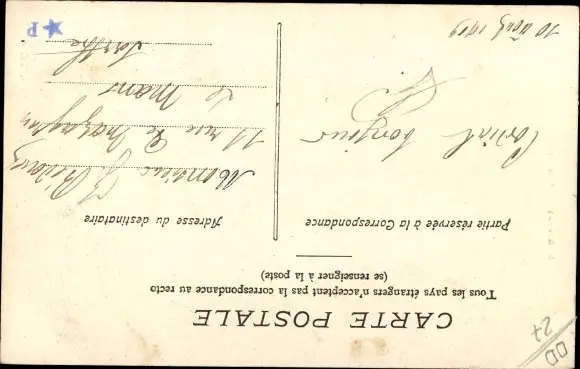 CARTE POSTALE
Tous les pays étrangers n'acceptent pas la correspondance au recto
(se renseigner à la poste)
Partie réservée à la Correspondance
Adresse du destinataire
Cordial bonjour
10 août 1919
Monsieur J.
11 rue de
Le Mans
Sarthe
P
DD
27